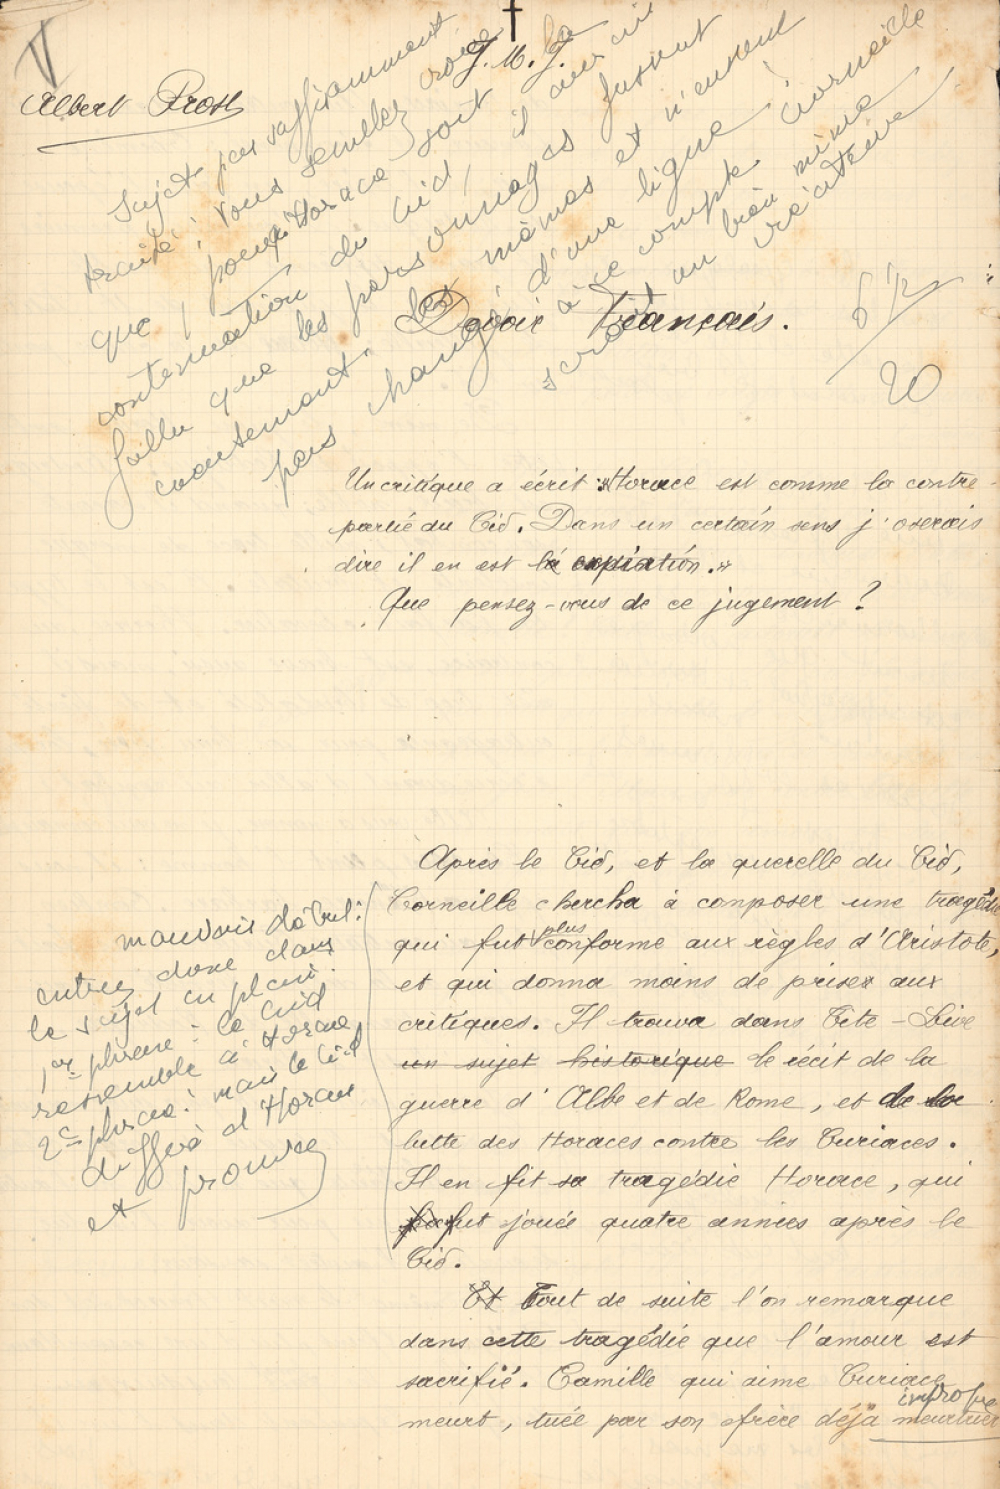 V
J. M. J.
Albert Prost
Sujet pas suffisamment
traité : vous semblez croire
que, pour qu'Horace soit la
continuation du Cid, il aurait
fallu que les personnages fussent
exactement les mêmes et n'eussent
pas changé d'une ligne !
à ce compte, Corneille
serait un bien mince
créateur
Devoir Français.
6 1/2
20
Un critique a écrit "Horace est comme la contre-
partie du Cid. Dans un certain sens j'oserais
dire il en est la expiation."
Que pensez-vous de ce jugement ?
Après le Cid, et la querelle du Cid,
Corneille chercha à composer une tragédie
qui fut plus conforme aux règles d'Aristote,
et qui donna moins de prises aux
critiques. Il trouva dans Tite-Live
un sujet historique le récit de la
guerre d'Albe et de Rome, et de la
lutte des Horaces contre les Curiaces.
Il en fit sa tragédie Horace, qui
fut jouée quatre années après le
Cid.
mauvais début :
entrez donc dans
le sujet en plein.
1ère phrase : le Cid
ressemble à Horace
2e phrase : mais le Cid
diffère d'Horace
et prouvez
Et Tout de suite l'on remarque
dans cette tragédie que l'amour est
sacrifié. Camille qui aime Curiace
meurt, tuée par son frère déjà meurtrier
impropre